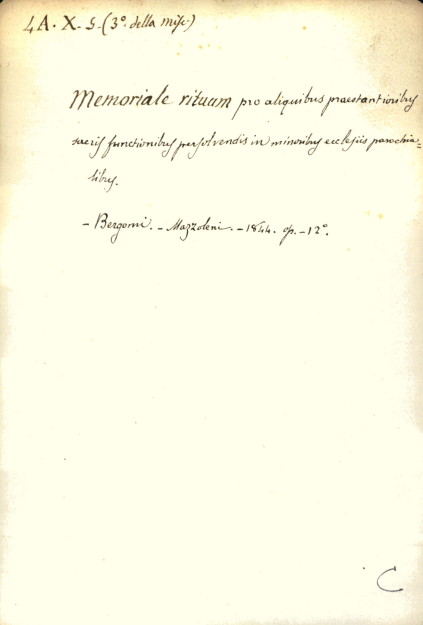 4A. X. 5. (3° della misc.)
Memoriale rituum pro aliquibus praestantioribus
sacris functionibus persolvendis in minoribus ecclesiis parochia=
libus.
- Bergomi. - Mazzoleni. - 1844. op. - 12°.
C